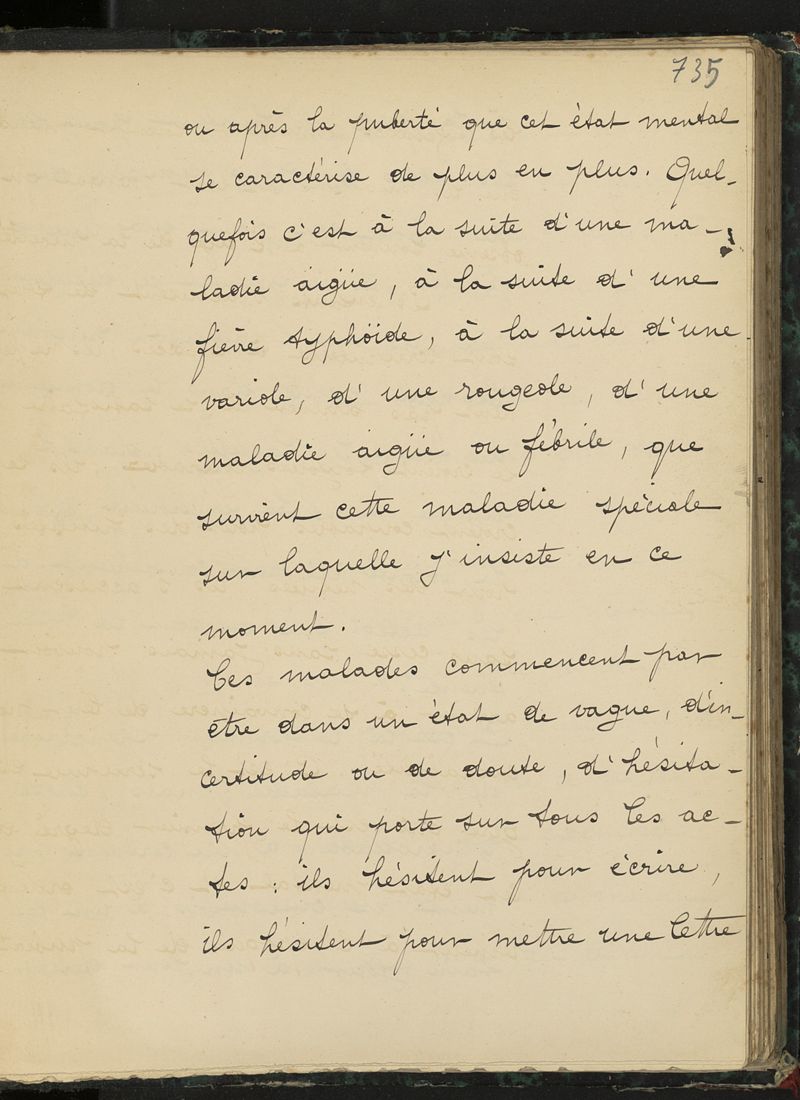 735
ou après la puberté que cet état mental
se caractérise de plus en plus. Quel-
quefois c'est à la suite d'une ma-
ladie aigüe, à la suite d'une
fièvre typhöide, à la suite d'une
variole, d'une rougeole, d'une
maladie aigüe ou fébrile, que
survient cette maladie spéciale
sur laquelle j'insiste en ce
moment.
Ces malades commencent par
être dans un état de vague, d'in-
certitude ou de doute, d'hésita-
tion qui porte sur tous les ac-
tes : ils hésitent pour écrire,
ils hésitent pour mettre une lettre